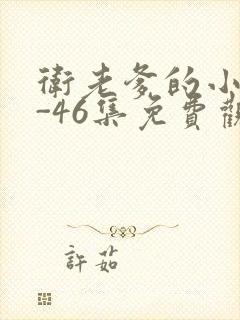 衛老爹的小
-46集免費觀
許茹